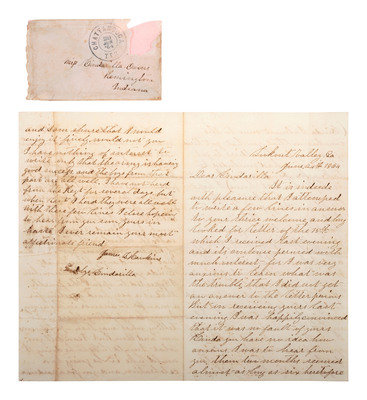 CHATTANOOGA
TEN
Miss Cinderilla Owens
Remington
Indiana
and I am shure that I would
enjoy it finely, would not you
I have nothing of interest to
write only that the army is having
good success and the boys from that
part are all well, I have not heard
from the Regt for several days but
when last I heard they were all well
with these few lines I close hopein
to hear from you soon. yours in
haste I ever remain your most
affectionate friend
James L Hankins
Cinderilla
Lookout Valley Ga
June 20th 1864
Dear Cinderilla
It is indeed
with pleasure that I attempt
to write a few lines in answer
to your thrice welcome and long
looked for letter of the 10th
which I received last evening
and its contents perused with
much interest, for I was very
anxious to learn what was
the trouble that I did not get
an answer to the letter previous
But on receiving yours last
evening I was happily convinced
that it was no fault of yours
you have no idea how
anxious I was to hear from
you, them two months seemed
almost as long as six heretofore